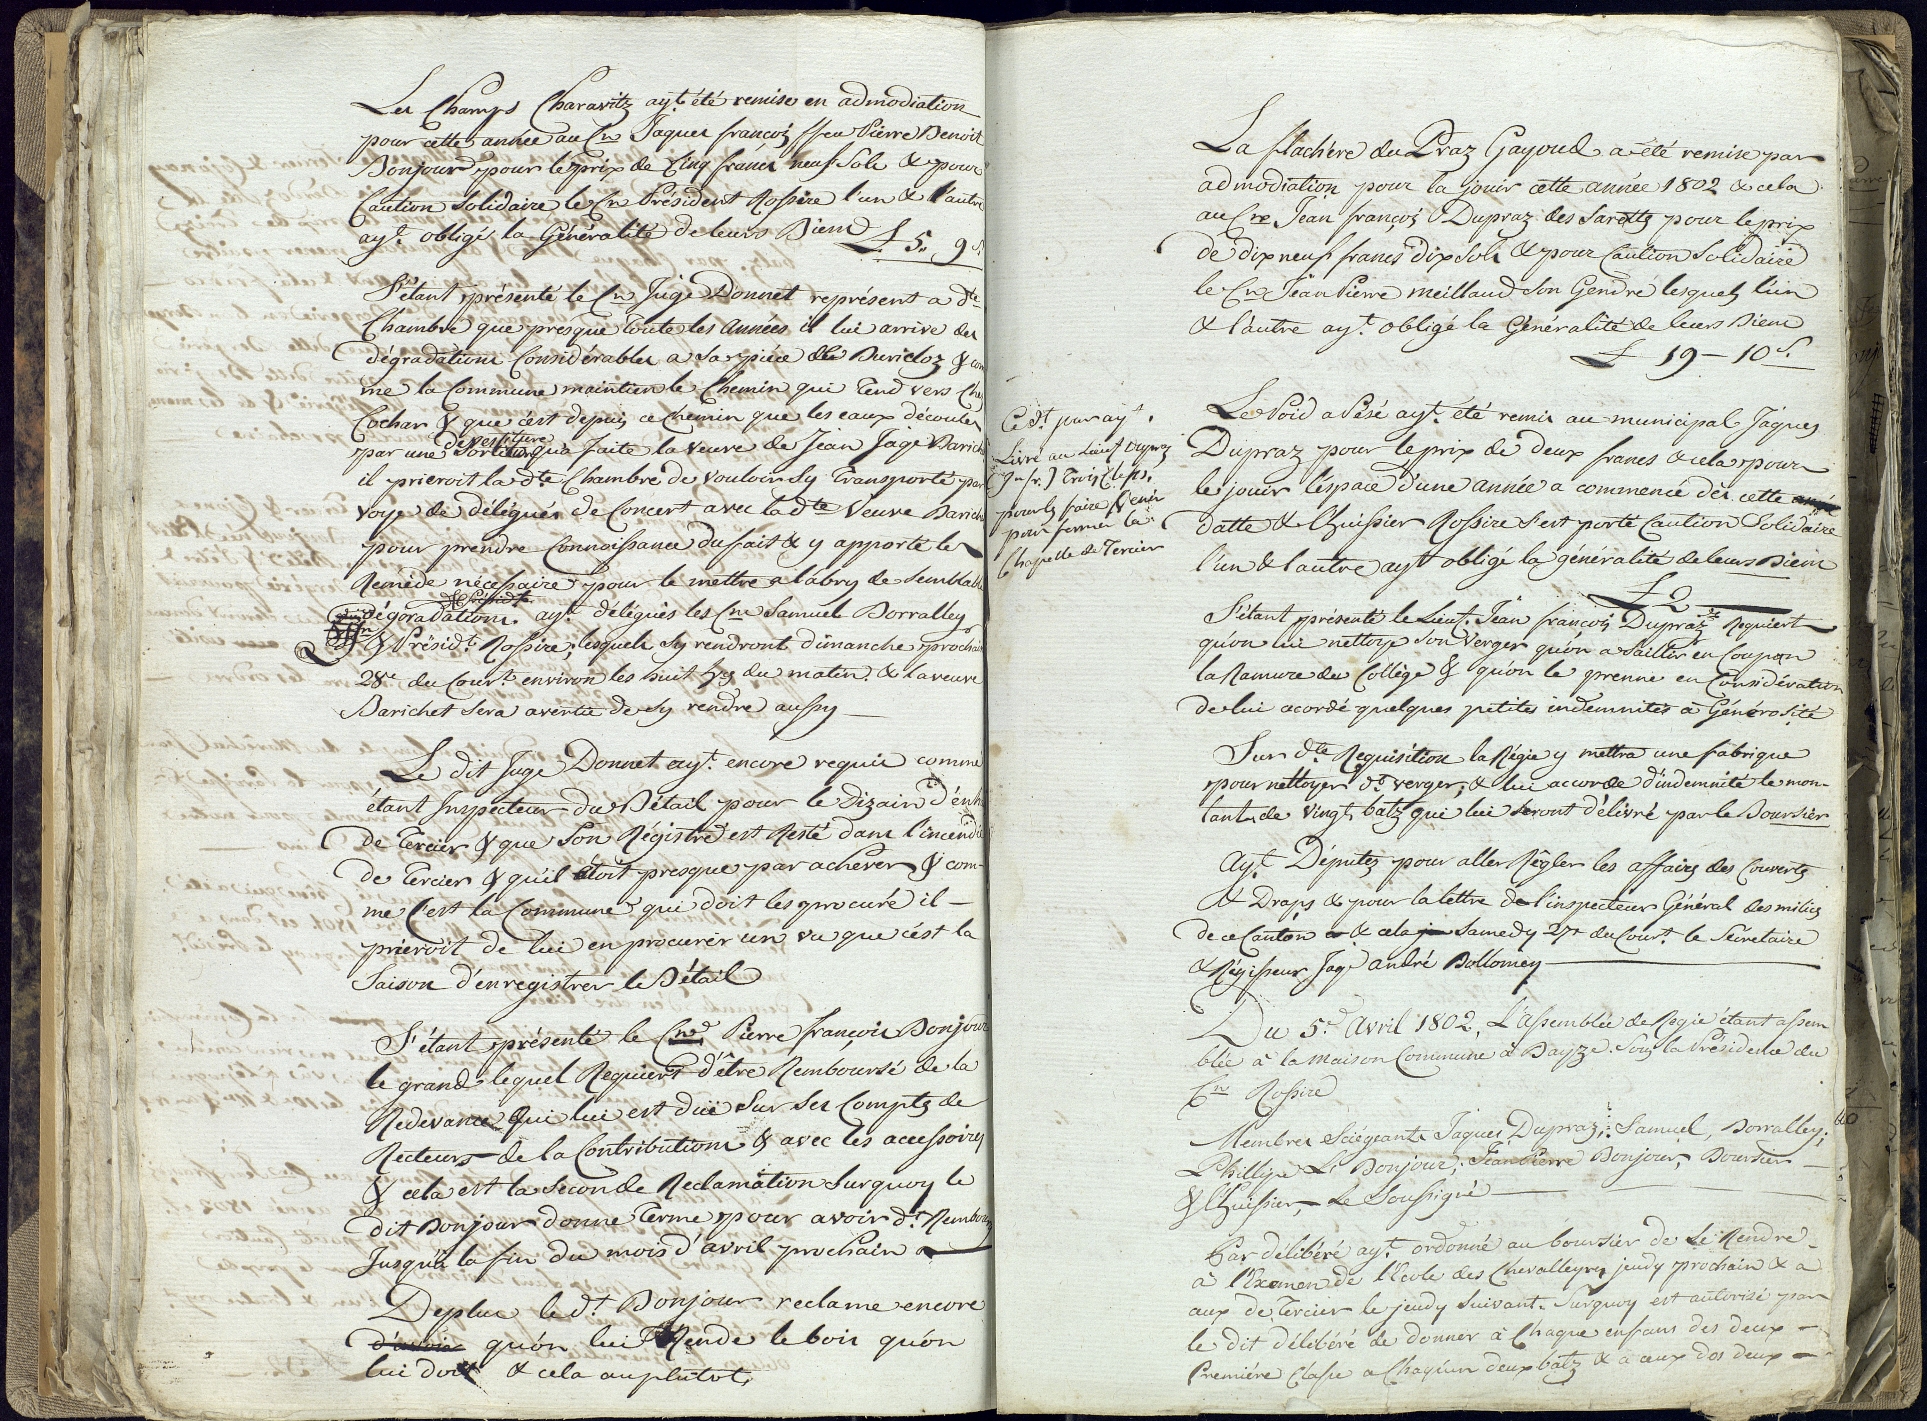 Les Champs Charavitz ayt été remise en admodiation
pour cette année au Cn Jaques françois ffeu Pierre Benoit
Bonjour pour le prix de Cinq francs neuf Sols & pour
Caution Solidaire le Cn Président Rossire l'un & l'autre
ayt obligés la Généralité de leurs Biens £ 5. 9 s.
S'étant présenté le Cn Juge Donnet représent a dte
Chambre que presque toute les Années il lui arrive des
dégradations Considérables a sa pièce & com
me la Commune maintien le Chemin qui tend vers Chez
Cochar & que c'est depuis ce Chemin que les eaux découles
devestiture
par une qu'a faite la veuve de Jean Jaqe Bariche
il prieroit la dte Chambre de vouloir sy transporté par
voye de délégués de Concert avec la dte veuve Bariche
pour prendre Connaissance du fait & y apporté le
Remède nécessaire pour le mettre a labry de semblable
dégoradations. ayt délégués les Cns Samuel Borralley
& Présidt Rossire; lesquels sy rendront dimanche prochain
28e du Court environ les huit hres du matin. & la veuve
Barichet sera avertie de sy rendre aussy —
Le dit Juge Donnet ayt encore requis comme
étant Inspecteur du Bétail pour le Dizain d'enh
de Tercier & que son Régistre est Resté dans l'incendie
de Tercier & qu'il étoit presque par achever & com-
me c'est la Commune qui doit les procuré il —
prieroit de lui en procurér un vu que c'est la
Saison d'enregistrer le Bétail
S'étant présenté le Cn Pierre françois Bonjour
le grand lequel Requiert d'être Remboursé de la
Redevance qui lui est düe sur ses Compts de
Recteurs de la Contributions & avec les accessoires
& cela est la seconde Reclamation surquoy le
dit Bonjour donne Terme pour avoir dt Rembours
Jusqu'a la fin du mois d'avril prochain —
Deplus le dt Bonjour reclame encore
d'avoir qu'on lui Rende le bois qu'on
lui doit & cela au plutot,
La flachère du Praz Gayoud a été remise par
admodiation pour la jouir cette année 1802 & cela
au Cn Jean françois Dupraz des Sarettz pour le prix
de dix neuf francs dix Sols & pour Caution Solidaire
le Cn Jean Pierre Meillaud son Gendre lesquels l'un
& l'autre ayt obligé la Généralité de leurs Biens
£ 19 — 10 s.
Le Poid a Pesé ayt été remis au municipal Jaques
Dupraz pour le prix de deux francs & cela pour
le jouir l'espace d'une année a commencé dès cette
datte & l'huissier Rossire s'est porté Caution Solidaire
l'un & l'autre ayt obligé la généralité de leurs Biens
£ 2 —
Ce dt jour ayt
Livré au Lieut Dupraz
(Jn fr.) Trois Clefs,
pour les faire Venir
pour fermer la
Chapelle de Tercier
S'étant présenté le Lieut. Jean françois Dupraz Requiert
qu'on lui nettoye son verger qu'on a Saillir en Coupon
la Ramure du Collège & qu'on le prenne en Considération
de lui acordé quelques petites indemnités à Générosité
Sur dte Requisition la Régie y mettra une fabrique
pour nettoyer dt verger; & lui accorde d'indemnité le mon-
tant de vingt batz qui lui seront délivré par le Boursier
Ayt Députez pour aller Régler les affaires des Couverts
& Draps & pour la lettre de l'inspecteur Général des milices
de ce Canton & cela Samedy 27e du Court. le Secretaire
& Régisseur Jaqe André Bollomey —
Du 5e Avril 1802, L'assemblée de Régie étant assem
blée à la maison Commune à Bayse. Sous la Présidence du
Cn Rossire
Membres Siégeants Jaques Dupraz; Samuel, Borralley;
Phillipe Ls Bonjour; Jean Pierre Bonjour, Boursier —
& l'huissier, — Le Soussigné —
Par délibéré ayt ordonné au boursier de Se Rendre
à l'Examen de l'Ecole des Chevalleyres jeudy prochain & a
aux de Tercier le jeudy Suivant. Surquoy est autorisé par
le dit délibéré de donner à Chaque enfans des deux —
Première Classe a Chaqu'un deux batz & a ceux des deux —